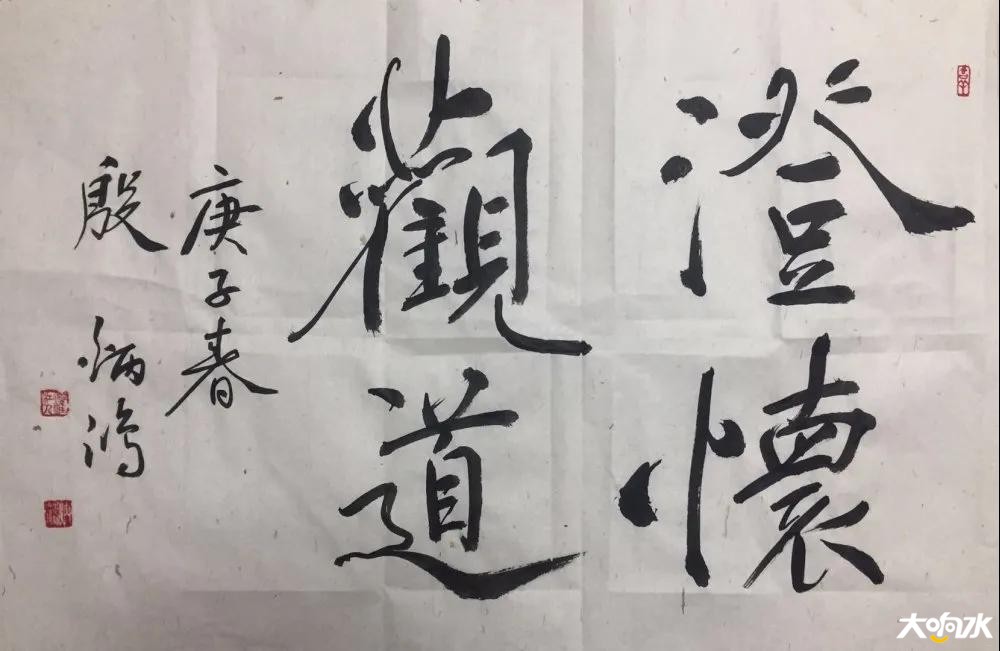 澄懷
觀道
庚子春
殷炳鴻
大响水